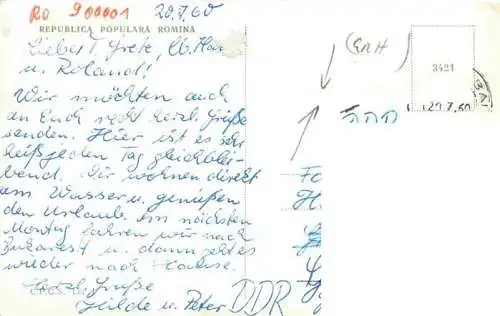 RO 900001 20.7.60
REPUBLICA POPULARA ROMINA
Liebe T. Grete, Ilb. Hans
u. Roland!
Wir möchten auch
an Euch recht herzl. Grüße
senden. Hier ist es sehr
heiß, jeden Tag gleichblei-
bend. Wir wohnen direkt
am Wasser u. genießen
den Urlaub. Am nächsten
Montag fahren wir nach
Bukarest u. dann geht es
wieder nach Hause.
Herzl. Grüße
Hilde u. Peter
DDR
3421
20.7.60